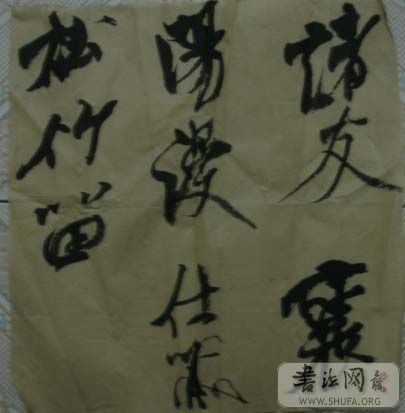 諸友
陽漫仕箫
松竹笛
書法网
WWW.SHUFA.ORG